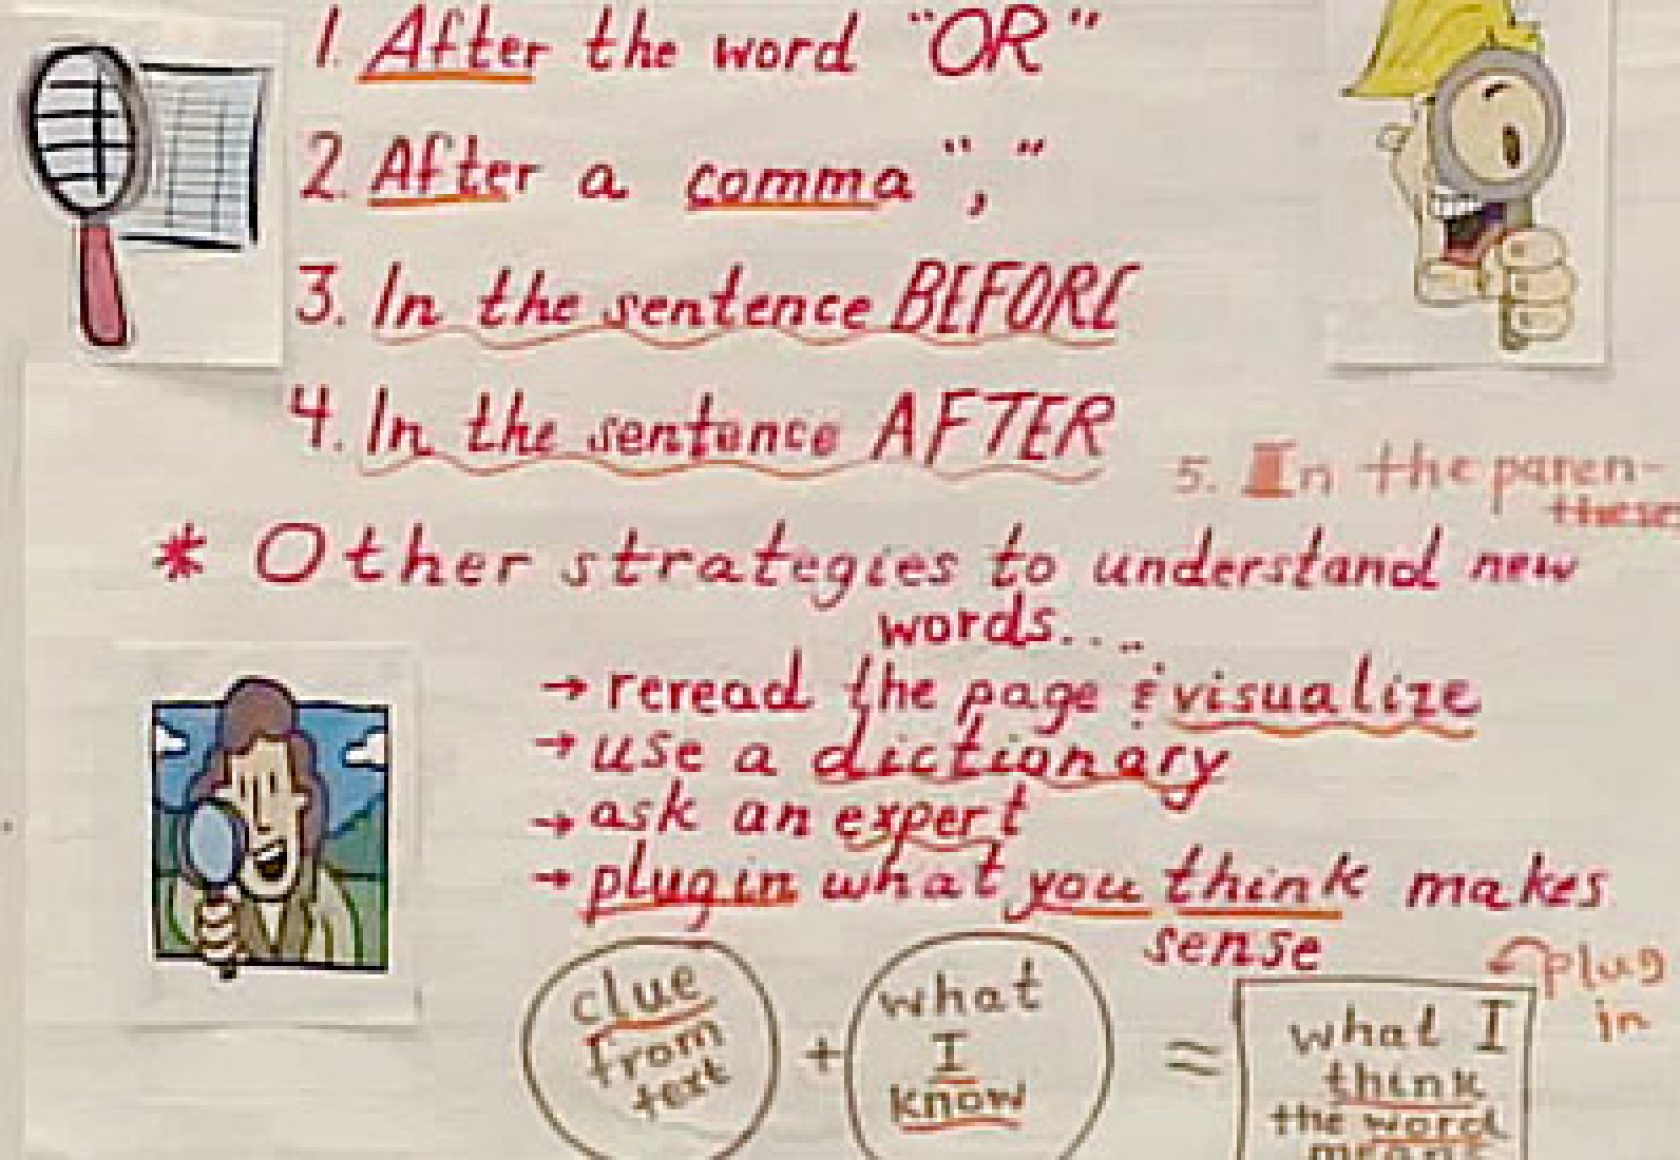 1. After the word "OR"
2. After a comma ","
3. In the sentence BEFORE
4. In the sentence AFTER
5. In the paren-
these
* Other strategies to understand new
words....
→ reread the page & visualize
→ use a dictionary
→ ask an expert
→ plug in what you think makes
sense
clue
from
text
+
what
I
know
=
plug
in
what I
think
the word
means